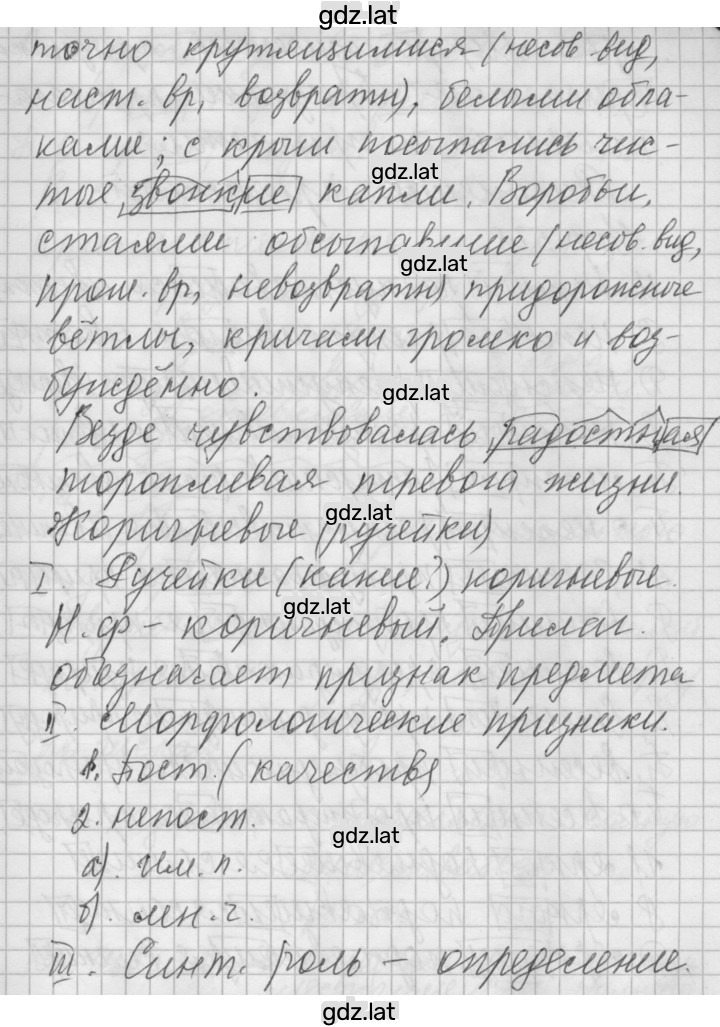 gdz.lat
точно крутящимися (несов. вид,
наст. вр, возвратн), белыми обла-
ками; с крыш посыпались чис-
gdz.lat
тые, звонкие капли. Воробьи,
стаями обсыпавшие (несов. вид,
gdz.lat
прош. вр, невозвратн) придорожные
вётлы, кричали громко и воз-
буждённо.
gdz.lat
Везде чувствовалась радостная
торопливая тревога жизни.
gdz.lat
Коричневые (ручейки)
I. Ручейки (какие?) коричневые.
gdz.lat
Н. ф - коричневый. Прилаг.
обозначает признак предмета
II. Морфологические признаки.
1. Пост. (качеств)
2. непост.
gdz.lat
а). Им. п.
б). мн. ч.
III. Синт. роль - определение.
gdz.lat